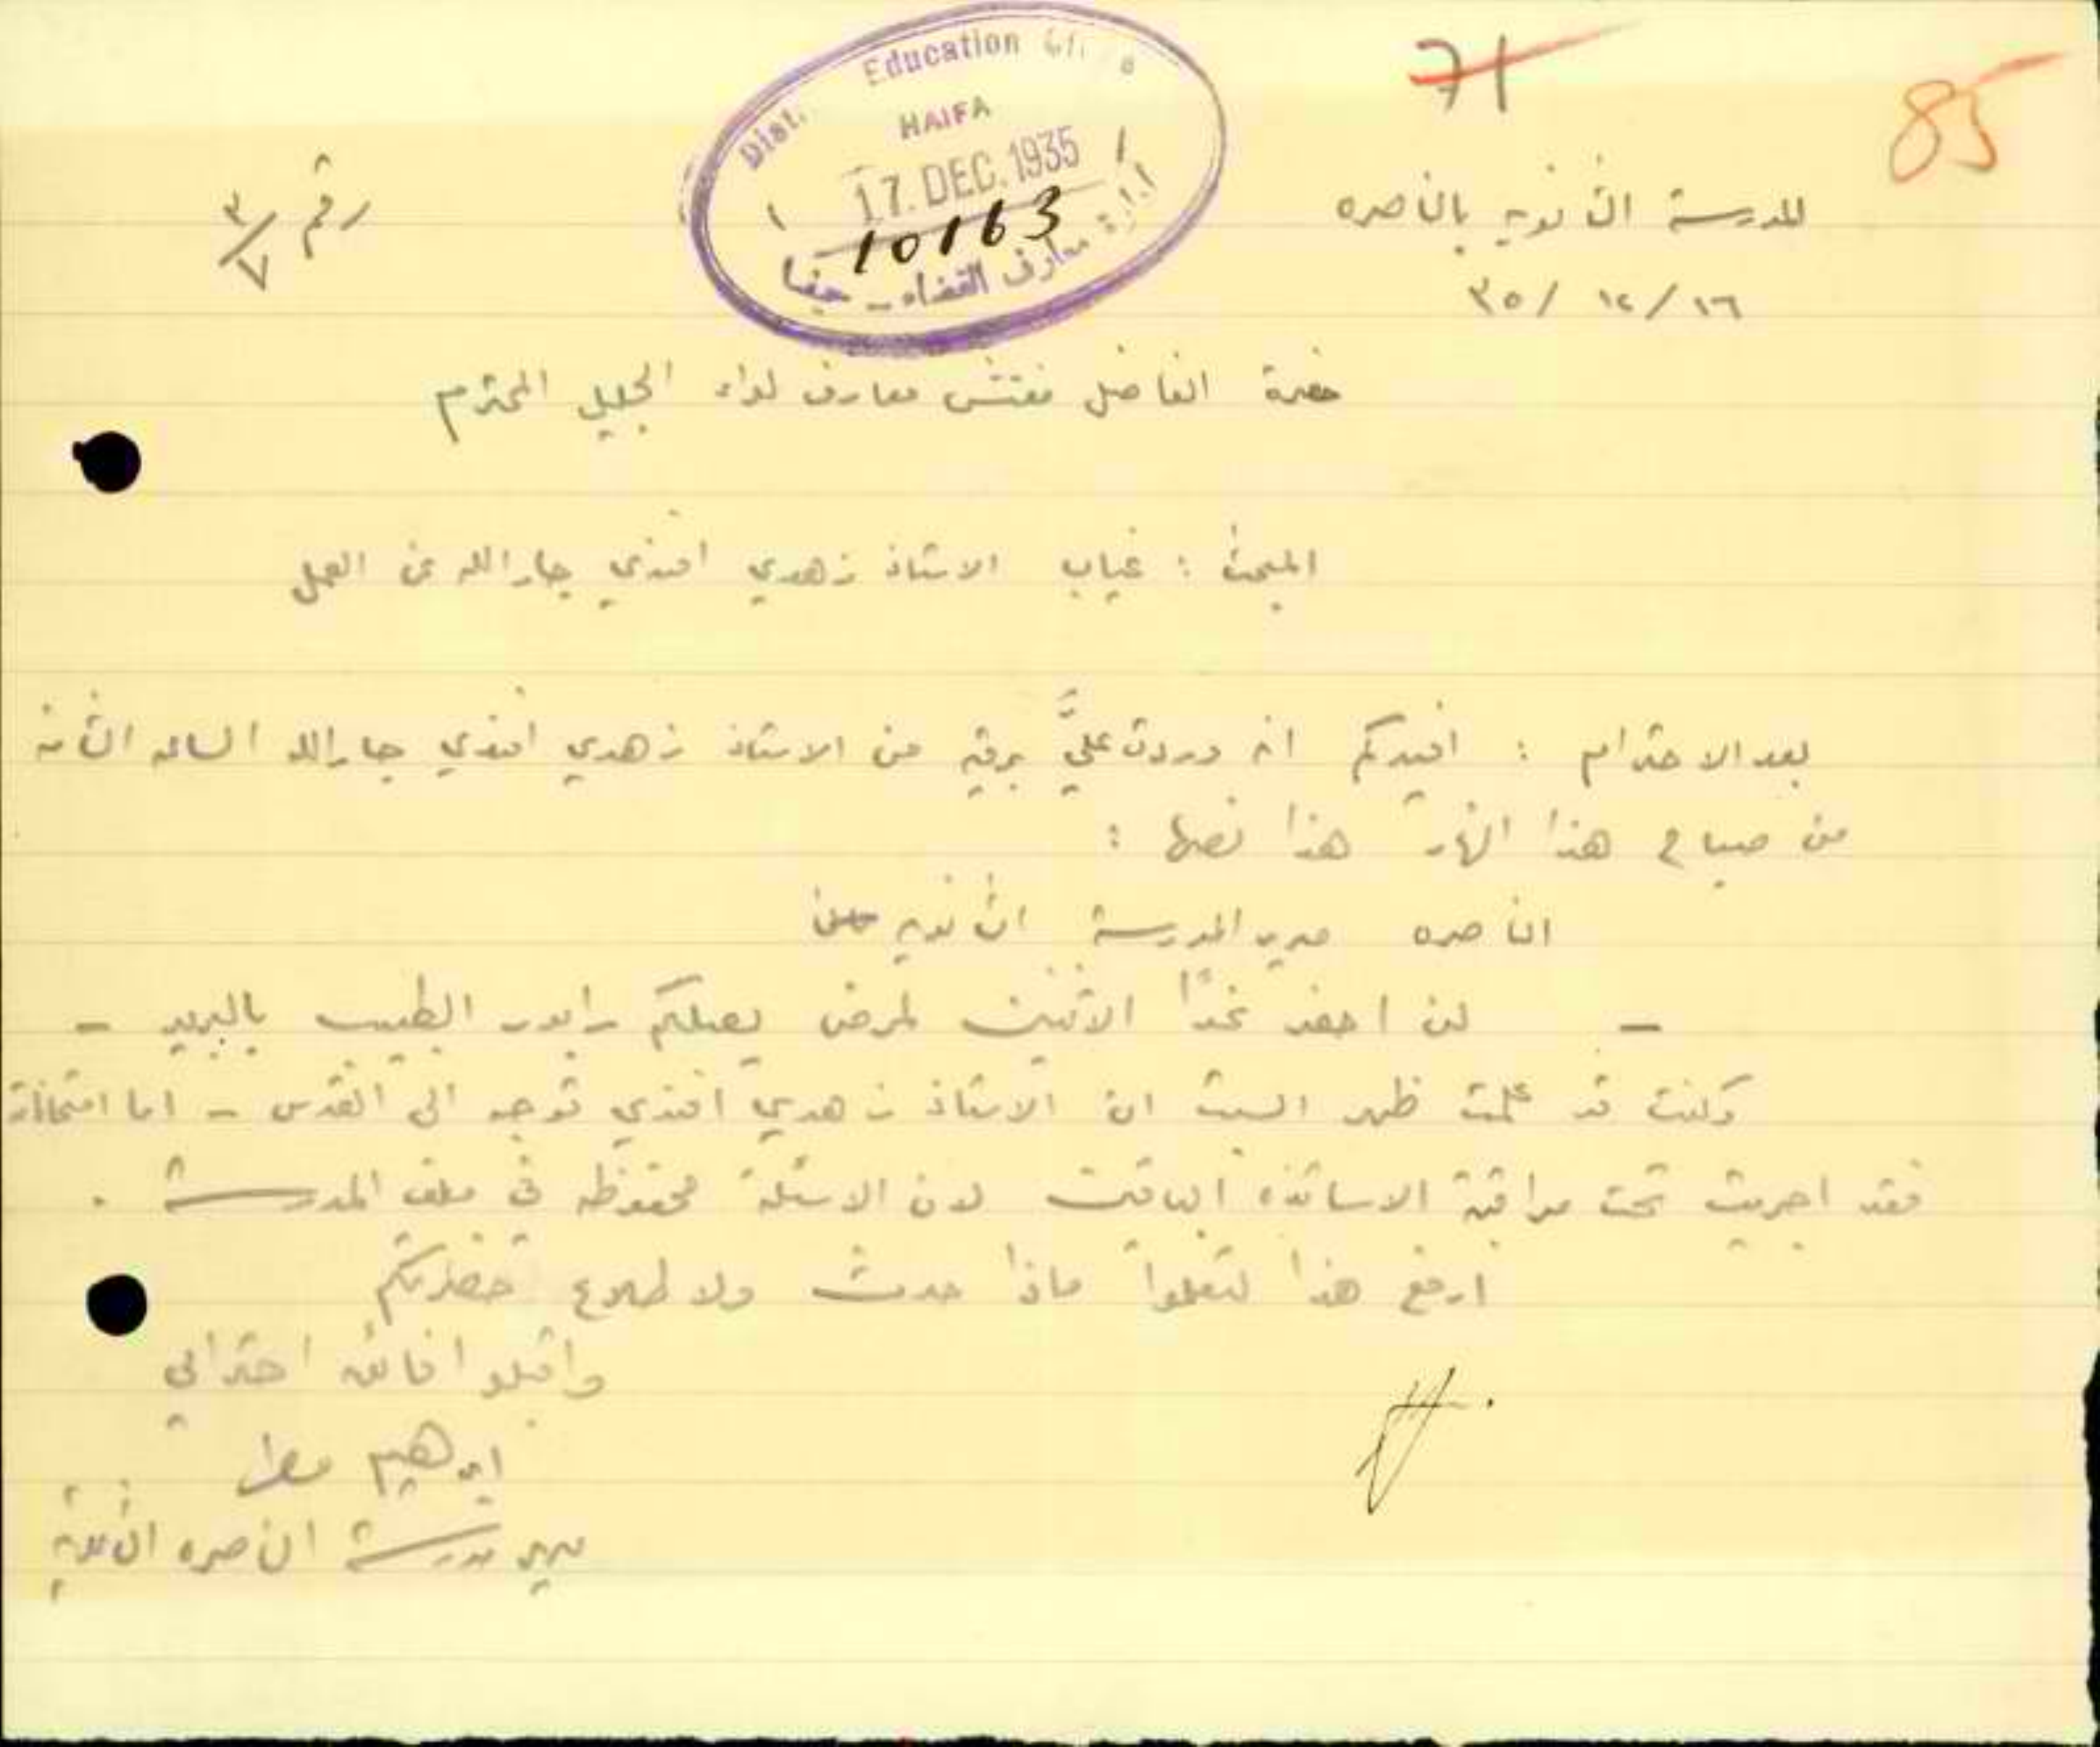 71
85
Dist. Education
HAIFA
17. DEC. 1935
10163
معارف القضاء - حيفا
المدرسة الثانويه بالناصره
رقم ٣/٧
١٦/ ١٢/ ٣٥
حضرة الفاضل مفتش معارف لواء الجليل المحترم
المبحث : غياب الاستاذ زهدي افندي جارالله عن العمل
بعد الاحترام : افيدكم انه وردت عليَّ برقية من الاستاذ زهدي افندي جارالله الساعه الثامنه
من صباح هذا النهار هذا نصها :
الناصره مدير المدرسة الثانويه
— لن احضر غداً الاثنين لمرض يصلكم رابور الطبيب بالبريد —
وكنت قد علمت ظهر السبت ان الاستاذ زهدي افندي توجه الى القدس — اما امتحاناته
فقد اجريت تحت مراقبة الاساتذه الباقين لان الاسئلة محفوظه في ملف المدرسة .
ارفع هذا لتعلموا ماذا حدث ولاطلاع حضرتكم
واقبلوا فائق احترامي
ابرهيم مطر
مدير مدرسة الناصره الثانوية